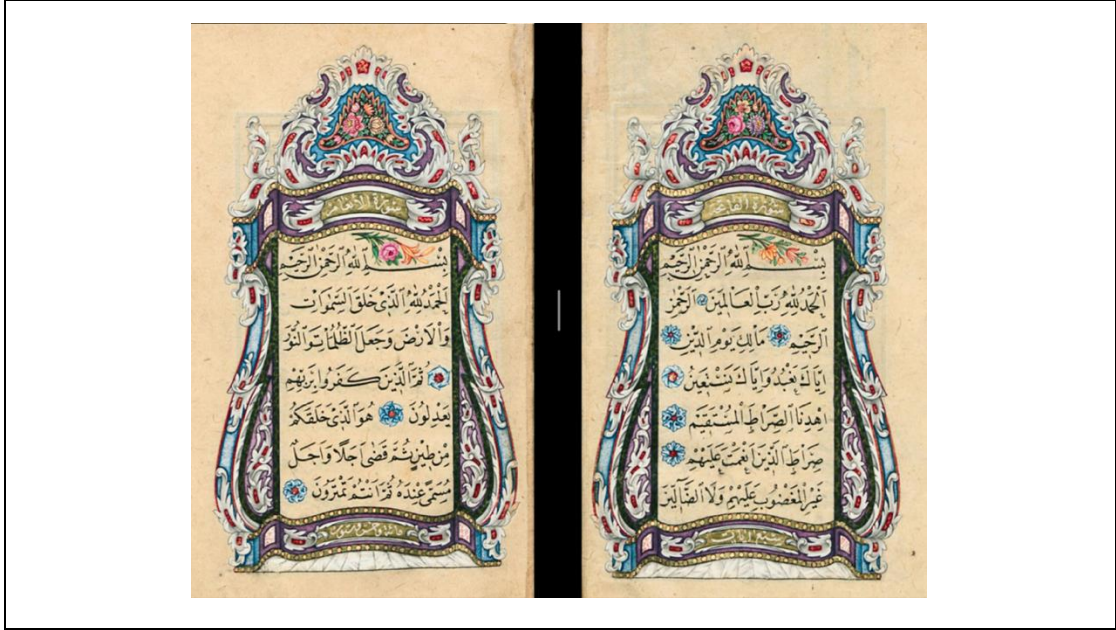 سورة الفاتحة
بِسْمِ اللهِ الرَّحْمٰنِ الرَّحِيمِ
اَلْحَمْدُ لِلّٰهِ رَبِّ الْعَالَمِينَ اَلرَّحْمٰنِ
الرَّحِيمِ مَالِكِ يَوْمِ الدِّينِ
اِيَّاكَ نَعْبُدُ وَاِيَّاكَ نَسْتَعِينُ
اِهْدِنَا الصِّرَاطَ الْمُسْتَقِيمَ
صِرَاطَ الَّذِينَ اَنْعَمْتَ عَلَيْهِمْ
غَيْرِ الْمَغْضُوبِ عَلَيْهِمْ وَلَا الضَّالِّينَ
سورة الأنعام
بِسْمِ اللهِ الرَّحْمٰنِ الرَّحِيمِ
اَلْحَمْدُ لِلّٰهِ الَّذِي خَلَقَ السَّمٰوَاتِ
وَالْاَرْضَ وَجَعَلَ الظُّلُمَاتِ وَالنُّورَ
ثُمَّ الَّذِينَ كَفَرُوا بِرَبِّهِمْ
يَعْدِلُونَ هُوَ الَّذِي خَلَقَكُمْ
مِنْ طِينٍ ثُمَّ قَضٰى اَجَلًا وَاَجَلٌ
مُسَمًّى عِنْدَهُ ثُمَّ اَنْتُمْ تَمْتَرُونَ